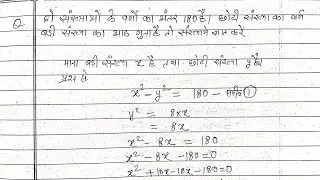 Q दो संख्याओ के वर्गो का अंतर 180 है। छोटी संख्या का वर्ग
बड़ी संख्या का आठ गुना है तो संख्याये ज्ञात करे
माना बड़ी संख्या x है तथा छोटी संख्या y है।
प्रश्न से
x² - y² = 180 - समी० ①
y² = 8×x
= 8x
x² - 8x = 180
x² - 8x - 180 = 0
x² + 10x - 18x - 180 = 0